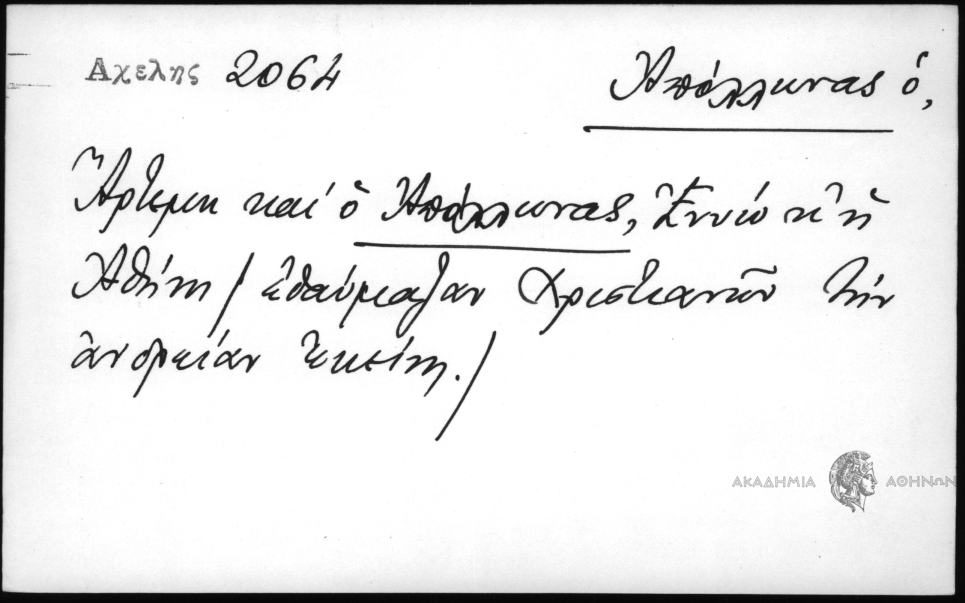 Αχελης 2064 Ἀπόλλωνας ὁ,
Ἄρτεμη καί ὁ Ἀπόλλωνας, Ἐννιώ κ' ἡ
Ἀθήνη / ἐθαύμαζαν Χριστιανῶν τήν
ἀνδρείαν ἐκείνη./
ΑΚΑΔΗΜΙΑ ΑΘΗΝΩΝ